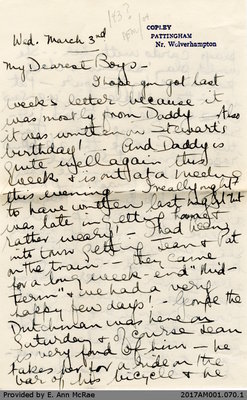 143?
COPLEY
PATTINGHAM
Nr. Wolverhampton
Wed. March 3rd
My Dearest Boys -
I hope you got last
week's letter because it
was mostly from Daddy - Also
it was written on Stewart's
birthday! - And Daddy is
quite well again this
week & is out at a meeting
this evening - I really ought
to have written last night but
was late in getting home &
rather weary! - I had been
into town getting Jean & Pat
on the train - they came
for a long week-end "Mid-
term" & we had a very
happy few days! - George the
Dutchman was here on
Saturday & of course Jean
is very fond of him - he
takes her for a ride on the
bar of his bicycle & he
Provided by E. Ann McRae
2017AM001.070.1